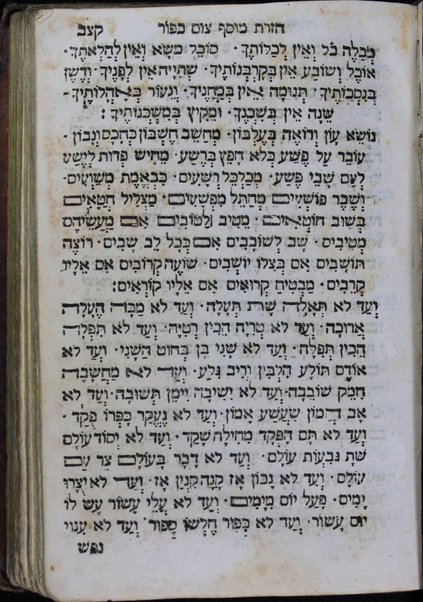 חזרת מוסף צום כפור קצב
מבלה כל ואין לבלותך · סובל משא ואין להלאתך ·
אוכל ושובע אין בקרבנותיך · שתייה אין לפניך · ודשן
בנסכותיך · תנומה אין במחניך · ונעור באהלותיך ·
שנה אין בשכנך · ומקיץ במשכנותיך :
נושא עון ורואה בעלבון · מחשב חשבון כחכם ונבון ·
עובר על פשע בלא חפץ ברשע · מחיש פדות לישע
לעם שבי פשע · מבלבל ושעים · בבאמת משועים ·
ושבר פושעים מחתל מפשעים · מצליל חטאים
בשוב חוטאים · מטיב ולטובים אם מעשיהם
מטיבים · שב לשובבים אם בכל לב שבים · רוצה
תושבים אם בצלו יושבים · שועה קרובים אם אליו
קרבים · מבטיח קרואים אם אליו קוראים :
ועד לא תאלה שת תעלה · ועד לא מכה העלה
ארוכה · ועד לא טריה הכין רטיה · ועד לא תפלה
הכין תפלה · ועד לא שני בן בחוט השני · ועד לא
אודם תולע הלבין וריב גלע · ועד לא מחשבה
חמק שובבה · ועד לא ישיבה יימן תשובה · ועד לא
אב המון שעשע אמון · ועד לא נעקר כפרו פקד ·
ועד לא תם הפקד מחילה שקד · ועד לא יסוד עולם
שת גבעות עולם · ועד לא דבר בעולם צר עם
עולם · ועד לא נכון אז קנה קנין אז · ועד לא יצרו
ימים · פעל יום מימים · ועד לא עלי עשור עש לו
יום עשור · ועד לא כפור חלשו ספור · ועד לא ענוי
נפש